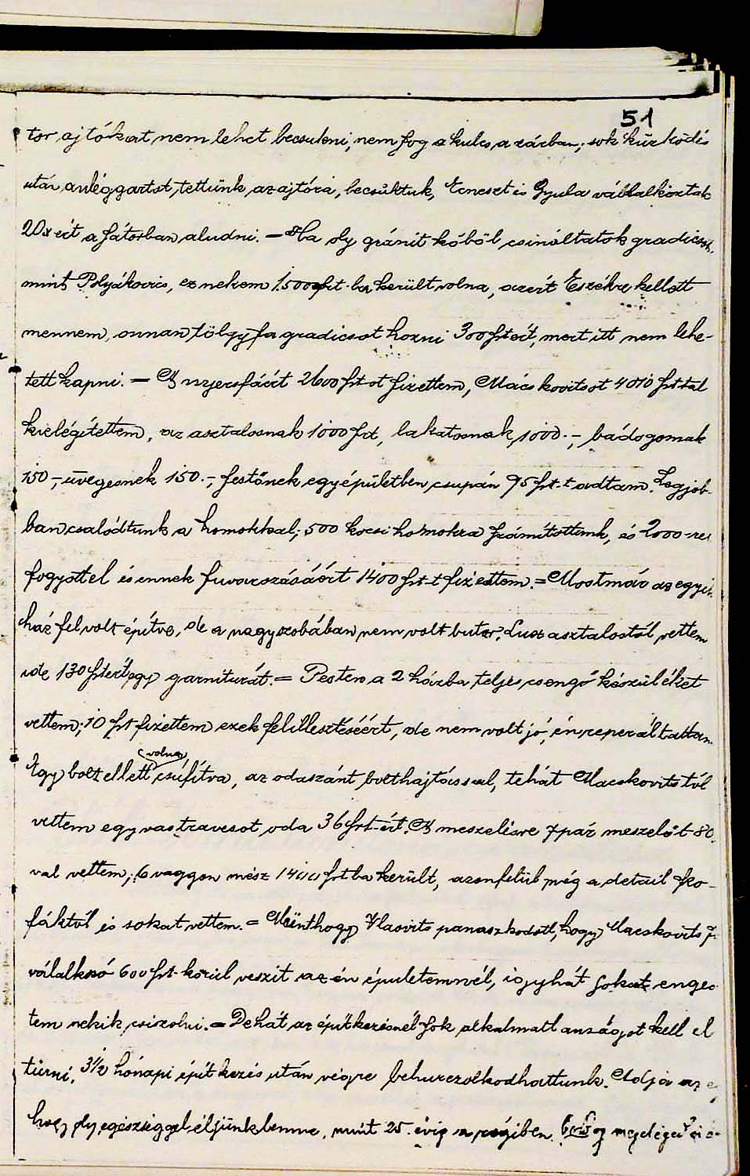 51
tor ajtókat nem lehet becsukni, nem fog a kulcs a zárban; sok küzködés
után anléggartot tettünk az ajtóra, becsuktuk, Erneszt és Gyula vállalkoztak
20x ért a sátorban aludni. — Ha oly gránit kőből csináltatok gradicsot
mint Polyákovics, ez nekem 1500 frt-ba került volna, azért Eszékre kellett
mennem, onnan tölgyfa gradicsot hozni 300 frtért, mert itt nem lehe-
tett kapni. — A nyersfáért 2600 frt-ot fizettem, Mácskovitsot 4010 frttal
kielégítettem, az asztalosnak 1000 frt, lakatosnak 1000.-, bádogosnak
150-, üvegesnek 150.-, festőnek egy épületben csupán 95 frt-t adtam. Legjob-
ban csalódtunk a homokkal; 500 kocsi homokra számítottunk, és 2000-re
fogyott el és ennek fuvarozásáért 1400 frt-t fizettem. = Most már az egyik
ház fel volt építve, de a nagyszobában nem volt butor. Lusz asztalostól vettem
ide 130 frtért egy garniturát. = Pesten a 2 házba teljes csengő készüléket
vettem; 10 frt fizettem ezek felillesztéséért, de nem volt jó, én reperáltattam.
Egy bolt ellett volna csúfítva, az odaszánt bolthajtással, tehát Macskovitstól
vettem egy vas traversot oda 36 frt-ért. A meszelésre 7 pár meszelőt 80.
val vettem; 6 vaggon mész 1400 frtba került, azonfelül még a detail ko-
fáktól is sokat vettem. = Minthogy Vlasits panaszkodott, hogy Macskovits
válalkozó 600 frt. körül veszit az én épületemnél, igyhát sokat enged-
tem nekik csizolni. = De hát az építkezésnél sok alkalmatlanságot kell el
türni. 3½ hónapi építkezés után végre behurczolkodhattunk. Adja az
hogy oly egészséggel éljünk benne, mint 25 évig a régiben.